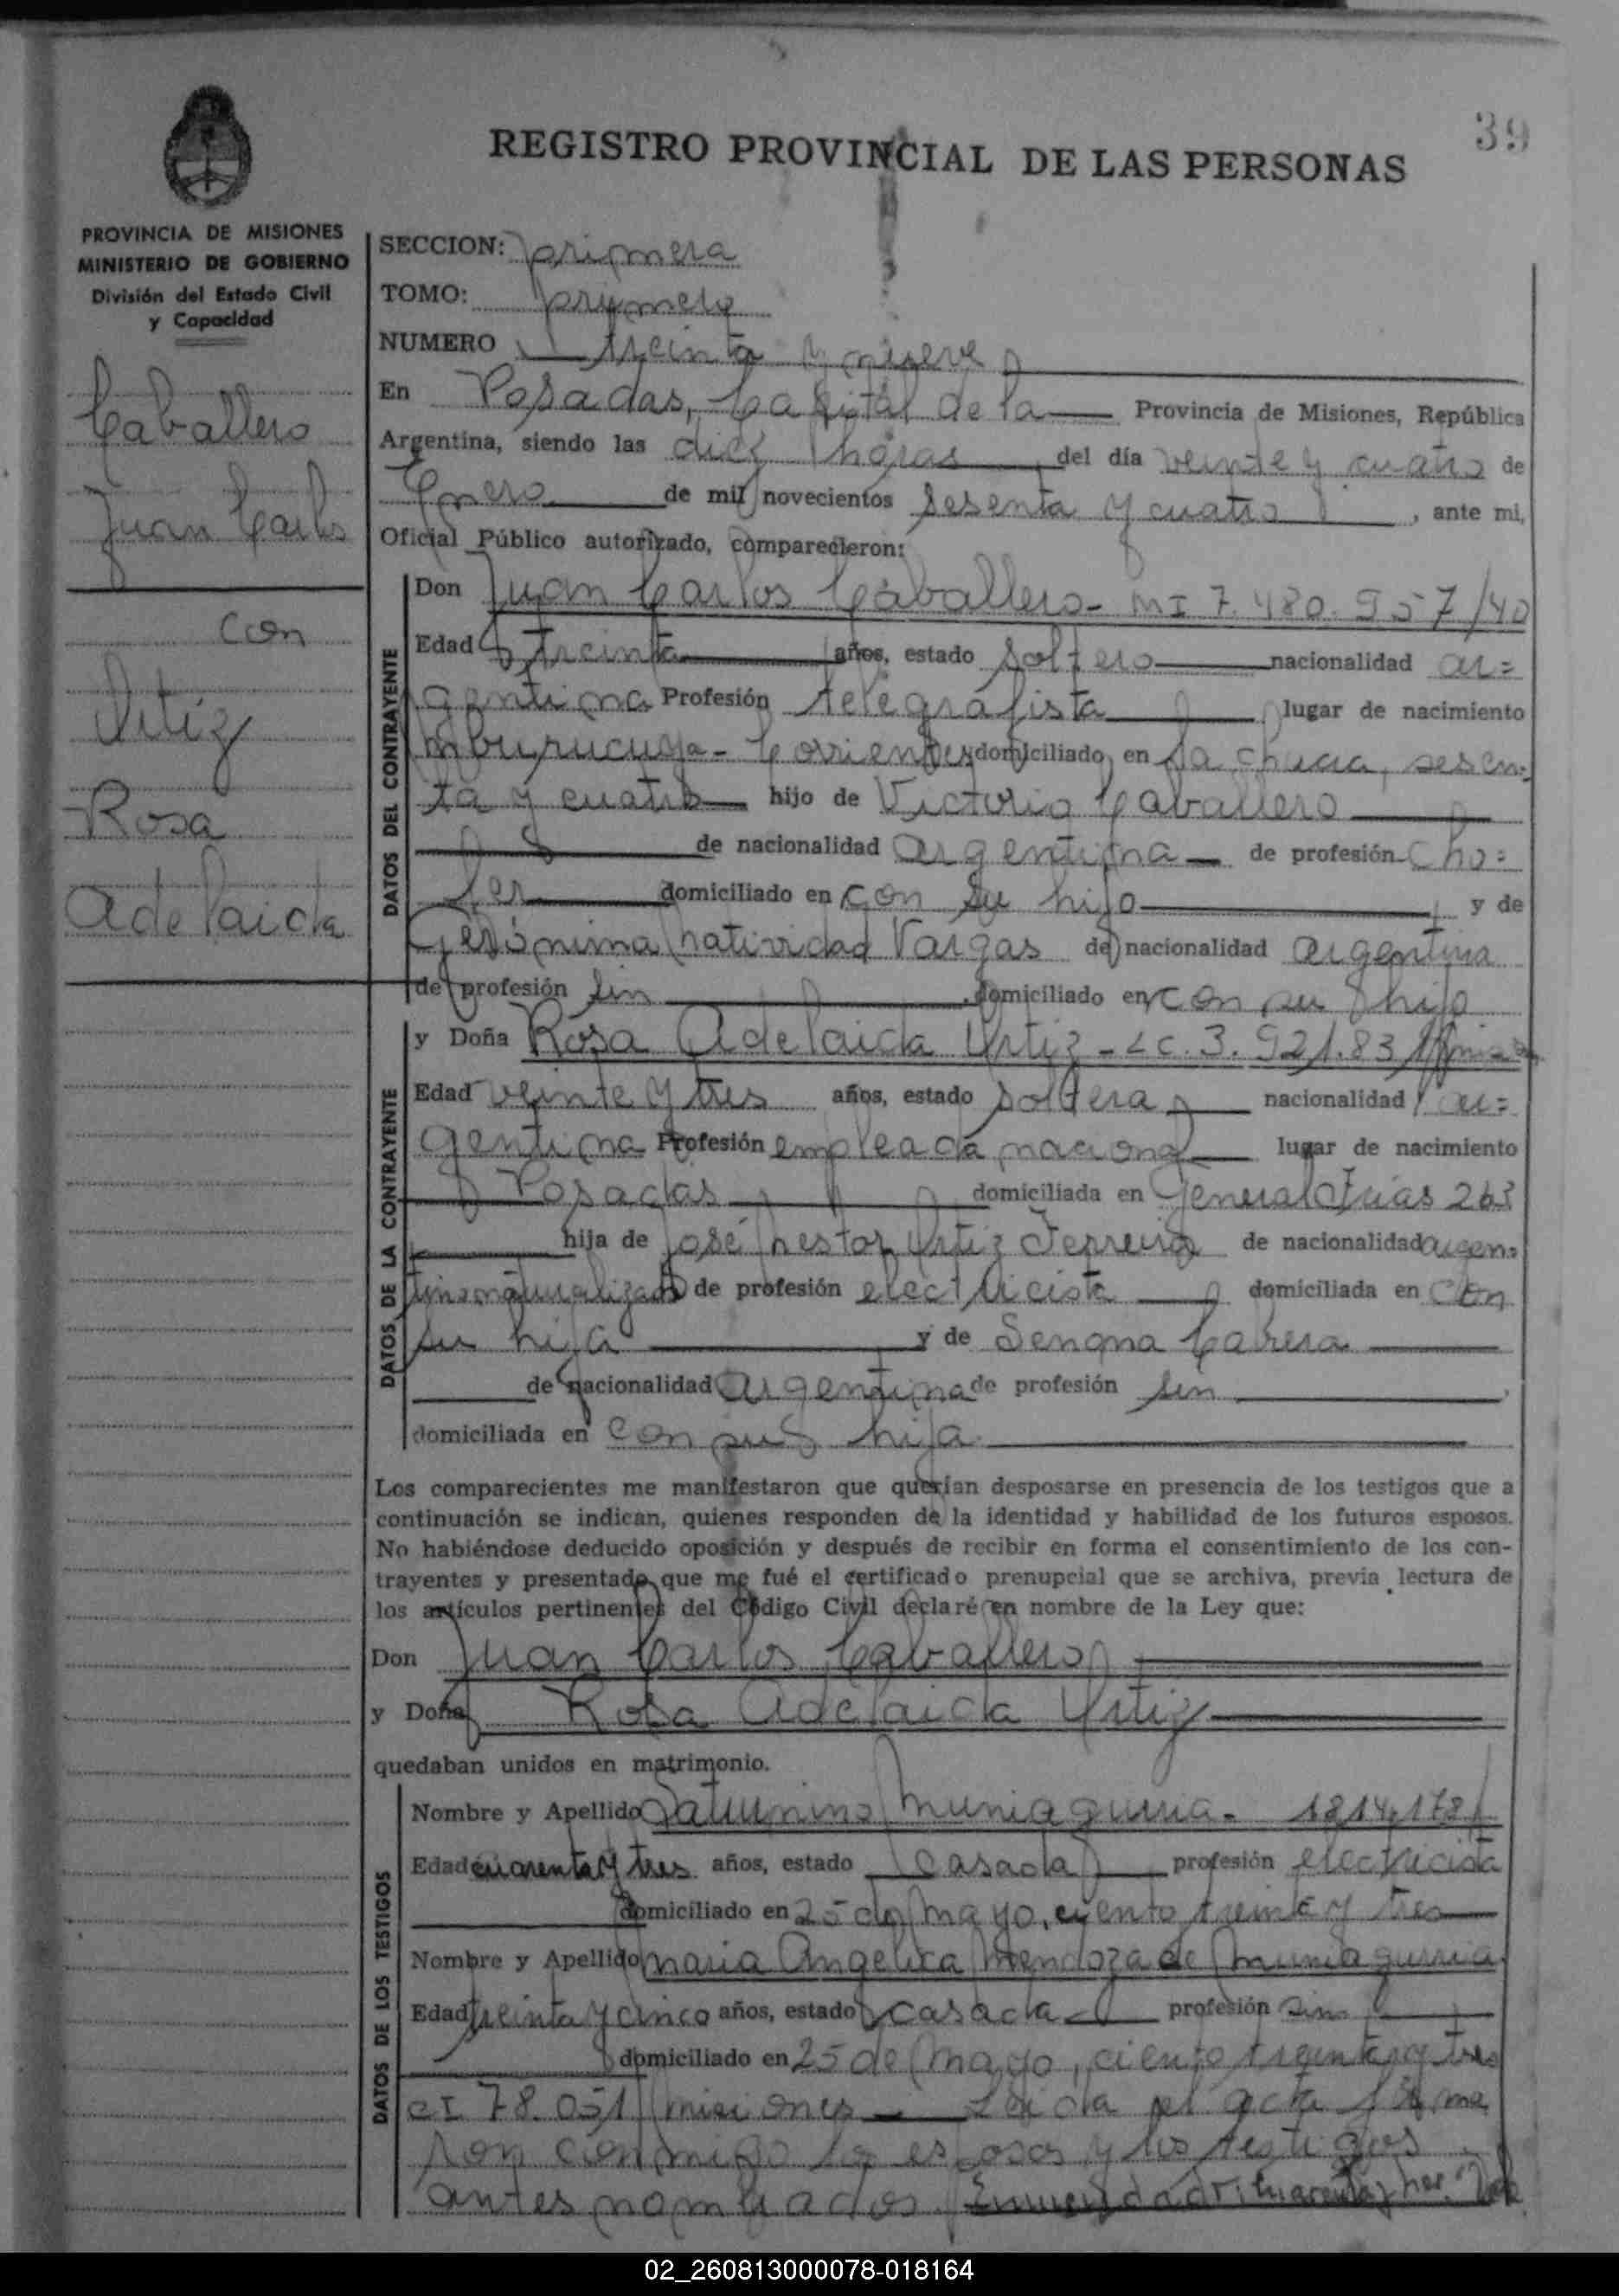 39
REGISTRO PROVINCIAL DE LAS PERSONAS
PROVINCIA DE MISIONES
MINISTERIO DE GOBIERNO
División del Estado Civil
y Capacidad
Caballero
Juan Carlos
con
Ortiz
Rosa
Adelaida
SECCION: primera
TOMO: primero
NUMERO treinta y nueve
En Posadas, Capital de la Provincia de Misiones, República
Argentina, siendo las diez horas del día veinte y cuatro de
Enero de mil novecientos sesenta y cuatro, ante mi,
Oficial Público autorizado, comparecieron:
DATOS DEL CONTRAYENTE
Don Juan Carlos Caballero - MI 7.480.957/40
Edad treinta años, estado soltero nacionalidad ar=
gentina Profesión telegrafista lugar de nacimiento
Mburucuya - Corrientes domiciliado en La chacra, sesen=
ta y cuatro hijo de Victorio Caballero
de nacionalidad argentina de profesión cho=
fer domiciliado en con su hijo y de
Gerónima Natividad Vargas de nacionalidad argentina
de profesión sin, domiciliado en con su hijo
DATOS DE LA CONTRAYENTE
y Doña Rosa Adelaida Ortiz - LC. 3.921.831
Edad veinte y tres años, estado soltera nacionalidad ar=
gentina Profesión empleada nacional lugar de nacimiento
Posadas domiciliada en General Frias 263
hija de José Nestor Ortiz Ferreira de nacionalidad argen=
tino naturalizado de profesión electricista domiciliada en con
su hija y de Senona Cabrera
de nacionalidad argentina de profesión sin
domiciliada en con su hija
Los comparecientes me manifestaron que querían desposarse en presencia de los testigos que a
continuación se indican, quienes responden de la identidad y habilidad de los futuros esposos.
No habiéndose deducido oposición y después de recibir en forma el consentimiento de los con-
trayentes y presentado que me fué el certificado prenupcial que se archiva, previa lectura de
los artículos pertinentes del Código Civil declaré en nombre de la Ley que:
Don Juan Carlos Caballero
y Doña Rosa Adelaida Ortiz
quedaban unidos en matrimonio.
DATOS DE LOS TESTIGOS
Nombre y Apellido Saturnino Muniagurria - 1814.178
Edad cuarenta y tres años, estado casado profesión electricista
domiciliado en 25 de Mayo, ciento treinta y tres
Nombre y Apellido Maria Angelica Mendoza de Muniagurria
Edad treinta y cinco años, estado casada profesión sin
domiciliado en 25 de Mayo, ciento treinta y tres
CI 78.051 Misiones - Leida el acta firma
ron conmigo los esposos y los testigos
antes nombrados. Enmendado: cuarenta y tres: Vale
02_260813000078-018164